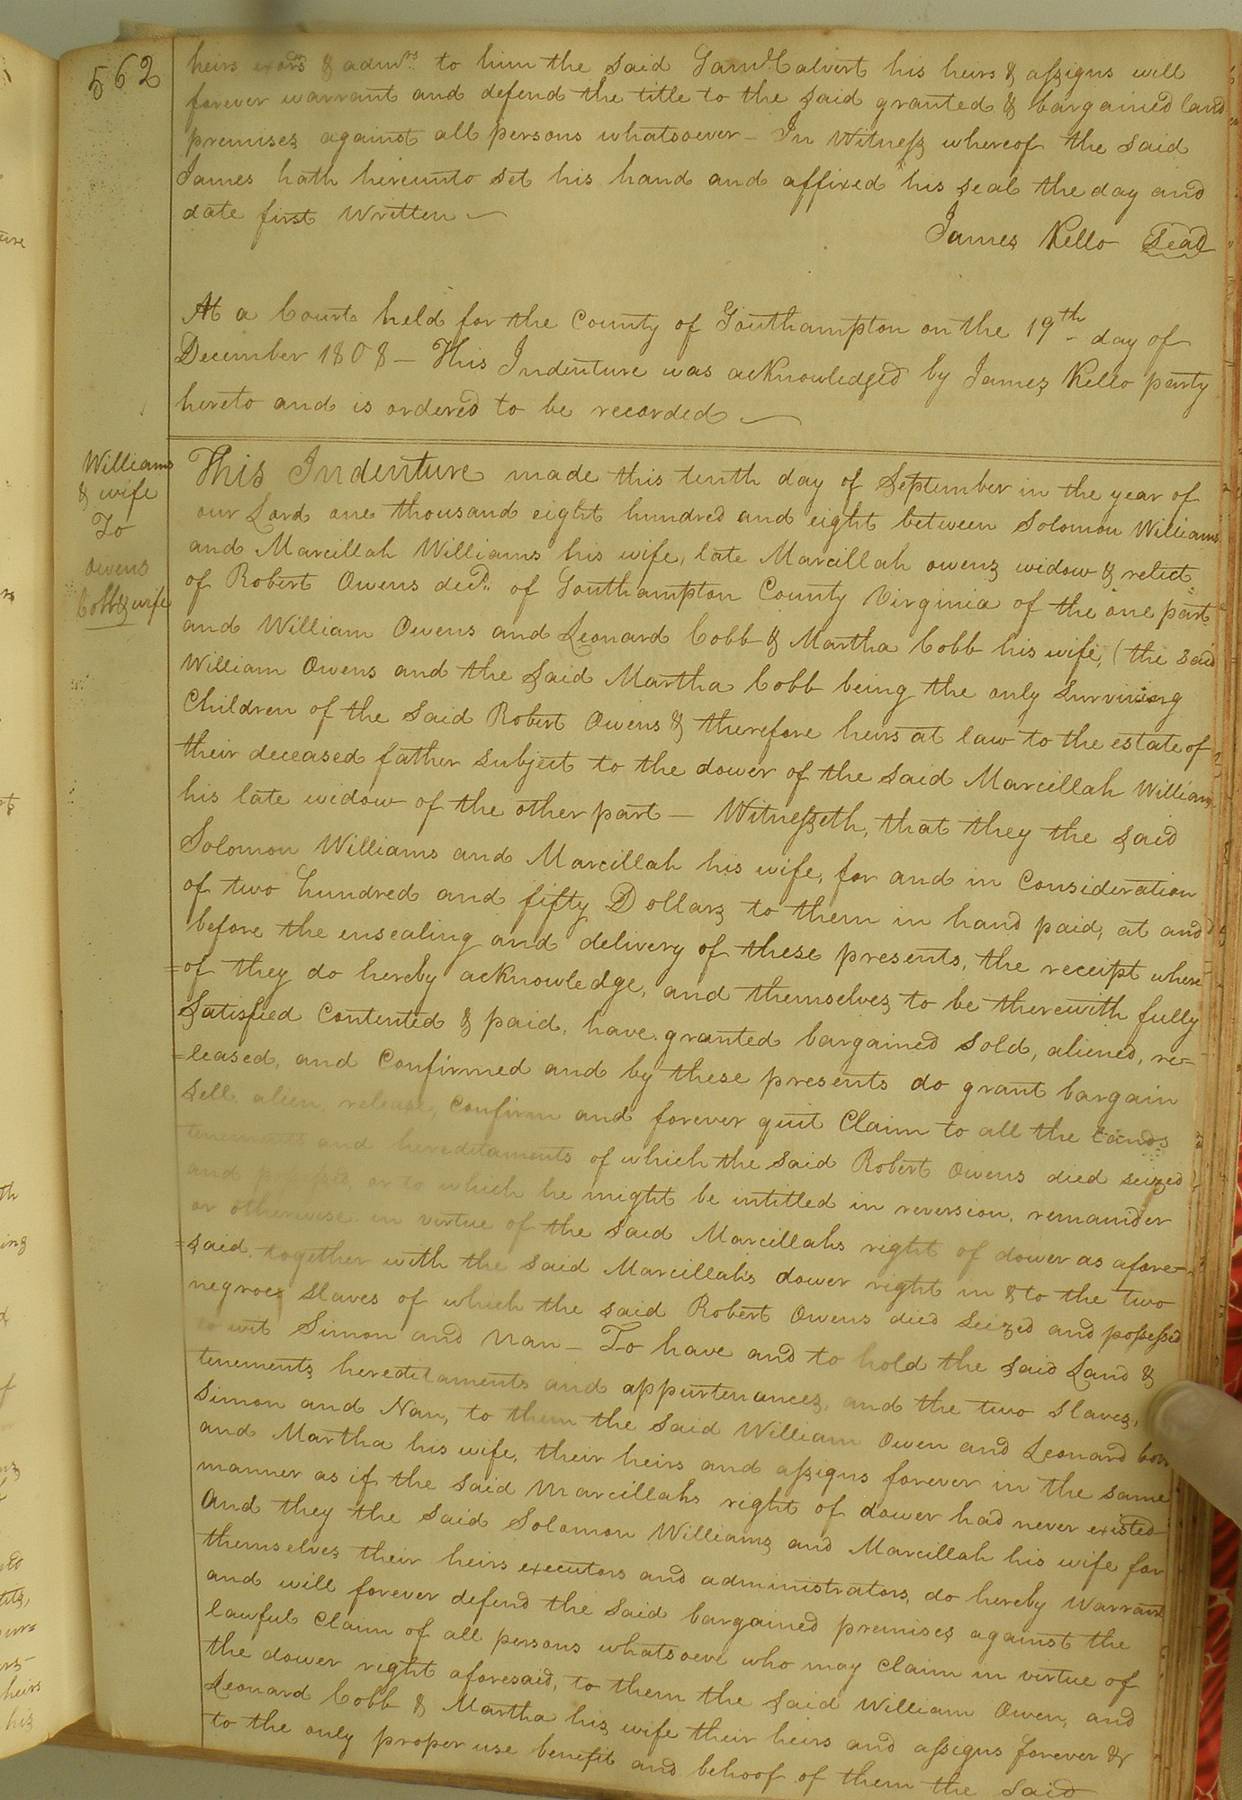 562
heirs exors & admrs. to him the said Saml Calvert his heirs & assigns will
forever warrant and defend the title to the said granted & bargained land
premises against all persons whatsoever – In Witness whereof the said
James hath hereunto set his hand and affixed his seal the day and
date first Written
James Kello Seal
At a Court held for the County of Southampton on the 19th day of
December 1808 – This Indenture was acknowledged by James Kello party
hereto and is ordered to be recorded
Williams
& wife
To
Owens
Cobb & wife
This Indenture made this tenth day of September in the year of
our Lord one thousand eight hundred and eight between Solomon Williams
and Marcillah Williams his wife, late Marcillah Owens widow & relict
of Robert Owens decd. of Southampton County Virginia of the one part
and William Owens and Leonard Cobb & Martha Cobb his wife, (the said
William Owens and the said Martha Cobb being the only surviving
Children of the said Robert Owens & therefore heirs at law to the estate of
their deceased father subject to the dower of the said Marcillah Williams
his late widow of the other part – Witnesseth, that they the said
Solomon Williams and Marcillah his wife, for and in Consideration
of two hundred and fifty Dollars to them in hand paid, at and
before the ensealing and delivery of these presents, the receipt where
=of they do hereby acknowledge, and themselves to be therewith fully
Satisfied Contented & paid, have granted bargained sold, aliened, re=
=leased, and Confirmed and by these presents do grant bargain
sell alien, release, Confirm and forever quit Claim to all the Lands
tenements and hereditaments of which the said Robert Owens died seized
and possessed, or to which he might be intitled in reversion, remainder
or otherwise in virtue of the said Marcillahs right of dower as afore=
=said, together with the said Marcillah's dower right in & to the two
negroes slaves of which the said Robert Owens died Seized and possessed
to wit Simon and Nan – To have and to hold the said Land &
tenements hereditaments and appurtenances, and the two slaves,
Simon and Nan, to them the said William Owen and Leonard Cobb
and Martha his wife, their heirs and assigns forever in the same
manner as if the said Marcillahs right of dower had never existed
And they the said Solomon Williams and Marcillah his wife for
themselves their heirs executors and administrators, do hereby Warrant
and will forever defend the said bargained premises against the
lawful Claim of all persons whatsoever who may Claim in virtue of
the dower right aforesaid, to them the said William Owen, and
Leonard Cobb & Martha his wife their heirs and assigns forever &
to the only proper use benefit and behoof of them the said